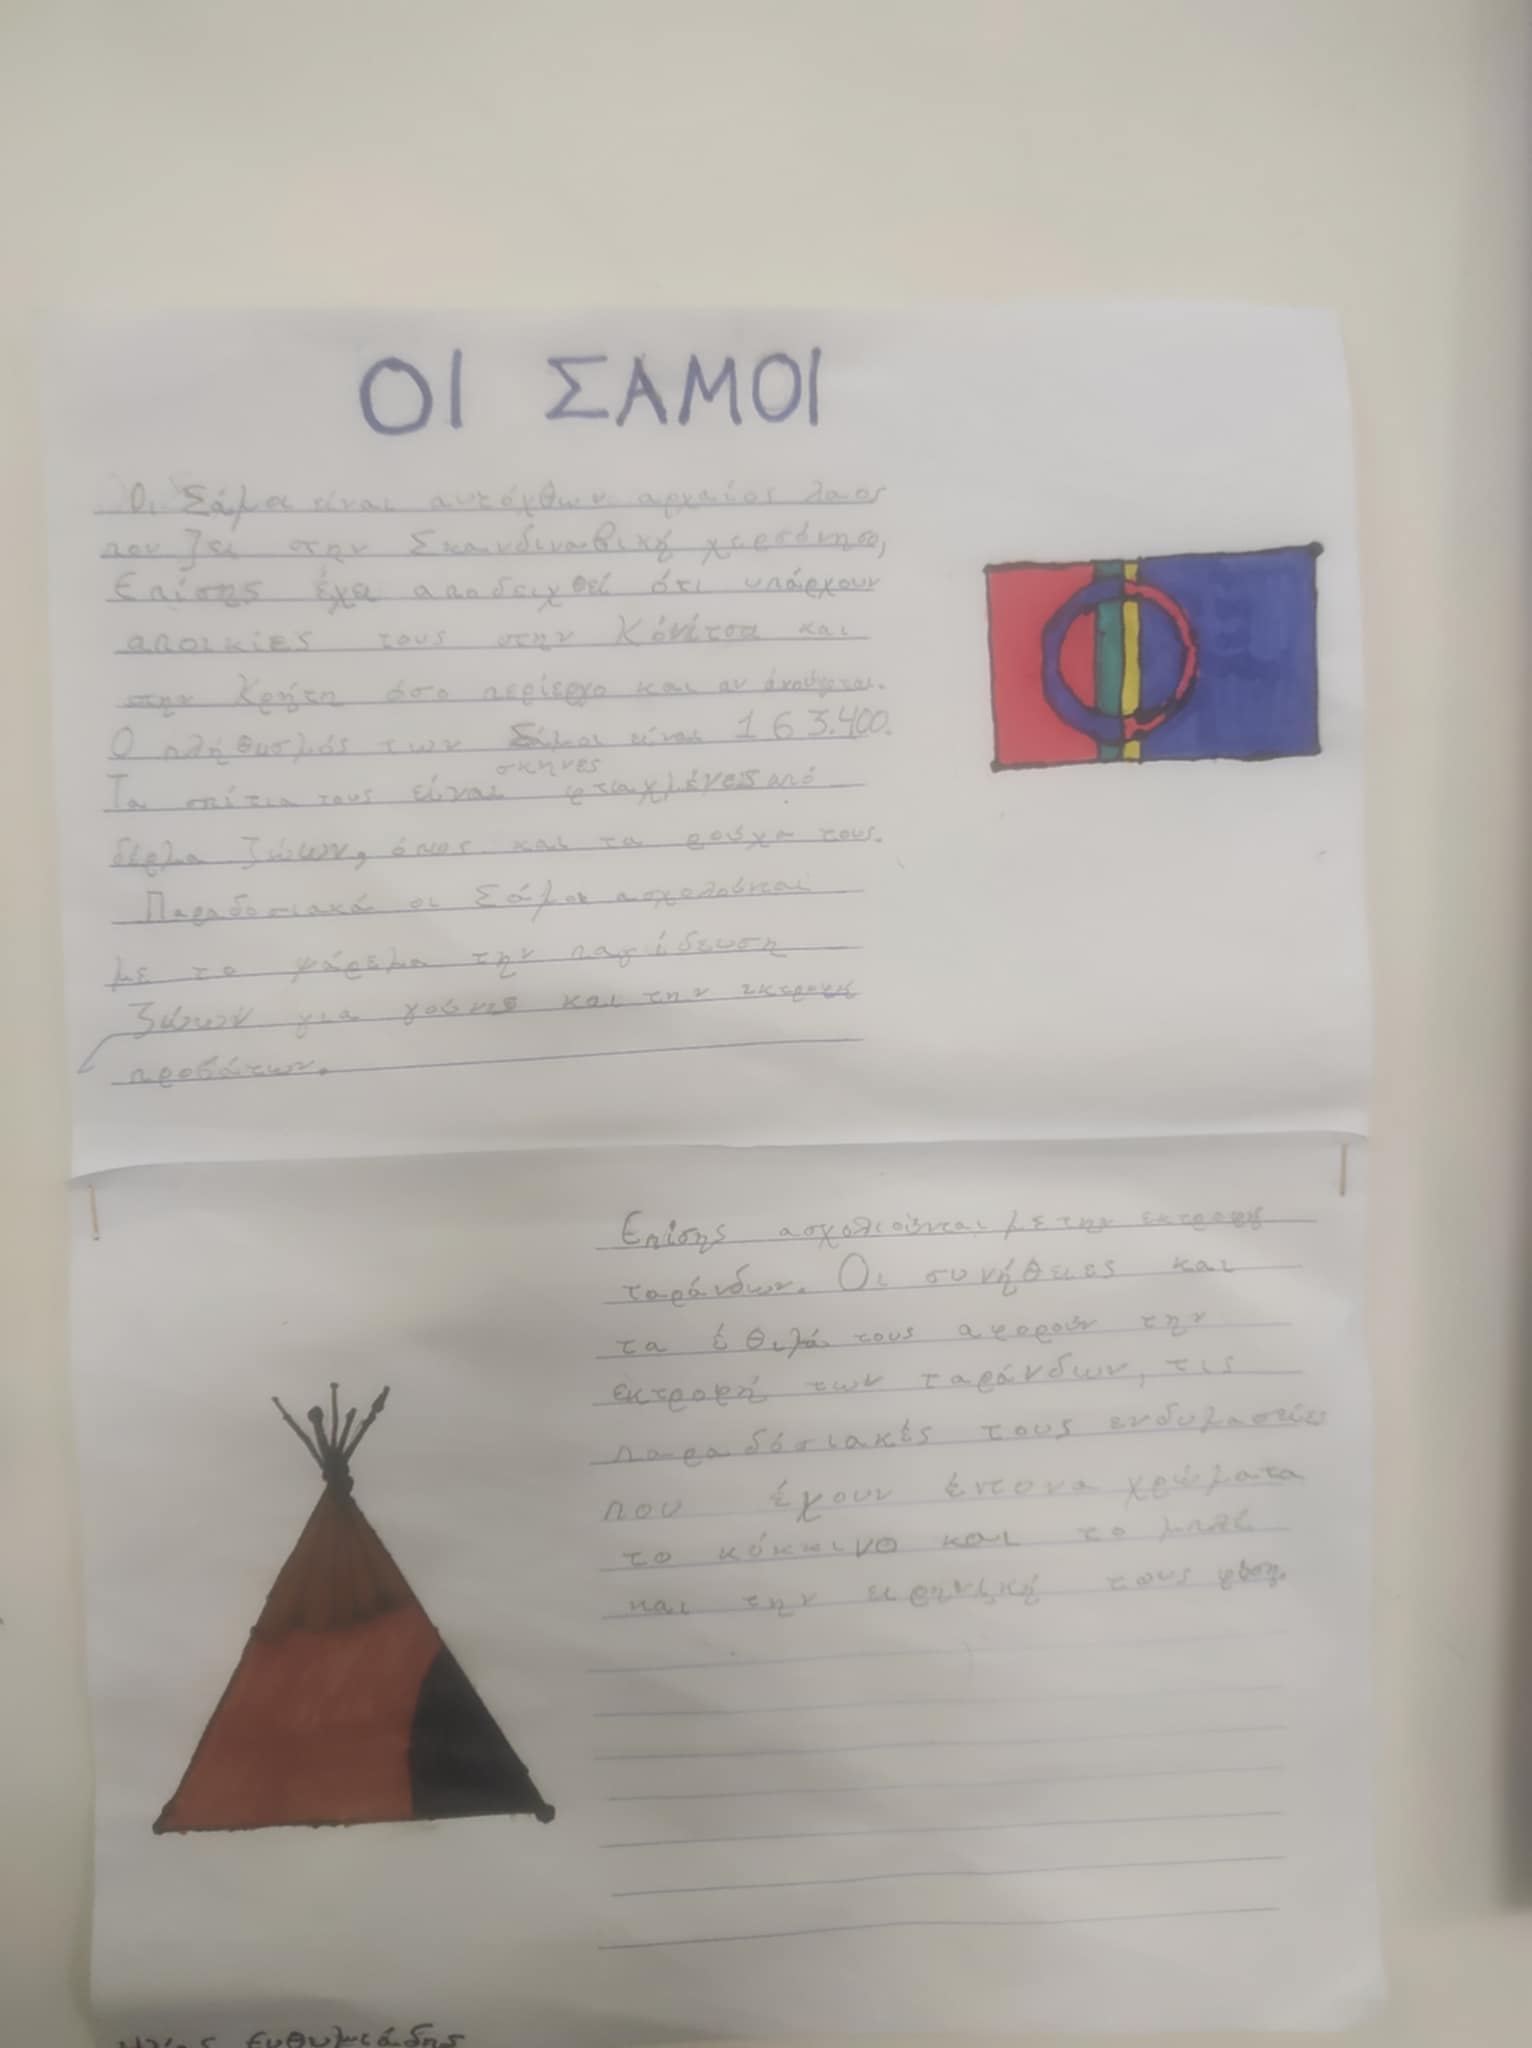 ΟΙ ΣΑΜΟΙ
Οι Σάμι είναι αυτόχθων αρχαίος λαος
που ζει στην Σκανδιναβική χερσόνησο,
Επίσης έχει αποδειχθεί ότι υπάρχουν
αποικίες τους στην Κόνιτσα και
στην Κρήτη όσο περίεργο και αν ακούγεται.
Ο πληθυσμός των Σάμοι είναι 163.400.
σκηνες
Τα σπίτια τους είναι φτιαχμένες από
δέρμα ζώων, όπως και τα ρούχα τους.
Παραδοσιακά οι Σάμοι ασχολούνται
με το ψάρεμα την παγίδευση
ζώων για γούνες και την εκτροφή
προβάτων.
Επίσης ασχολιούνται με την εκτροφή
ταράνδων. Οι συνήθειες και
τα έθιμά τους αφορούν την
εκτροφή των ταράνδων, τις
παραδόσιακές τους ενδυμασίες
που έχουν έντονα χρώματα
το κόκκινο και το μπλέ
και την ειρηνική τους φύση.
Ευθυμιάδης